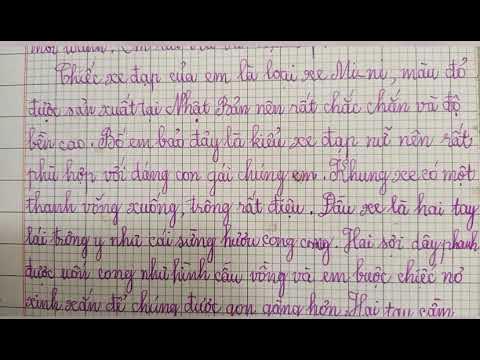 Chiếc xe đạp của em là loại xe Mi-ni, màu đỏ
được sản xuất tại Nhật Bản nên rất chắc chắn và độ
bền cao. Bố em bảo đây là kiểu xe đạp nữ nên rất
phù hợp với dáng con gái chúng em. Khung xe có một
thanh võng xuống, trông rất điệu. Đầu xe là hai tay
lái trông y như cái sừng hươu cong cong. Hai sợi dây phanh
được uốn cong như hình cầu vồng và em buộc chiếc nơ
xinh xắn để chúng được gọn gàng hơn. Hai tay cầm